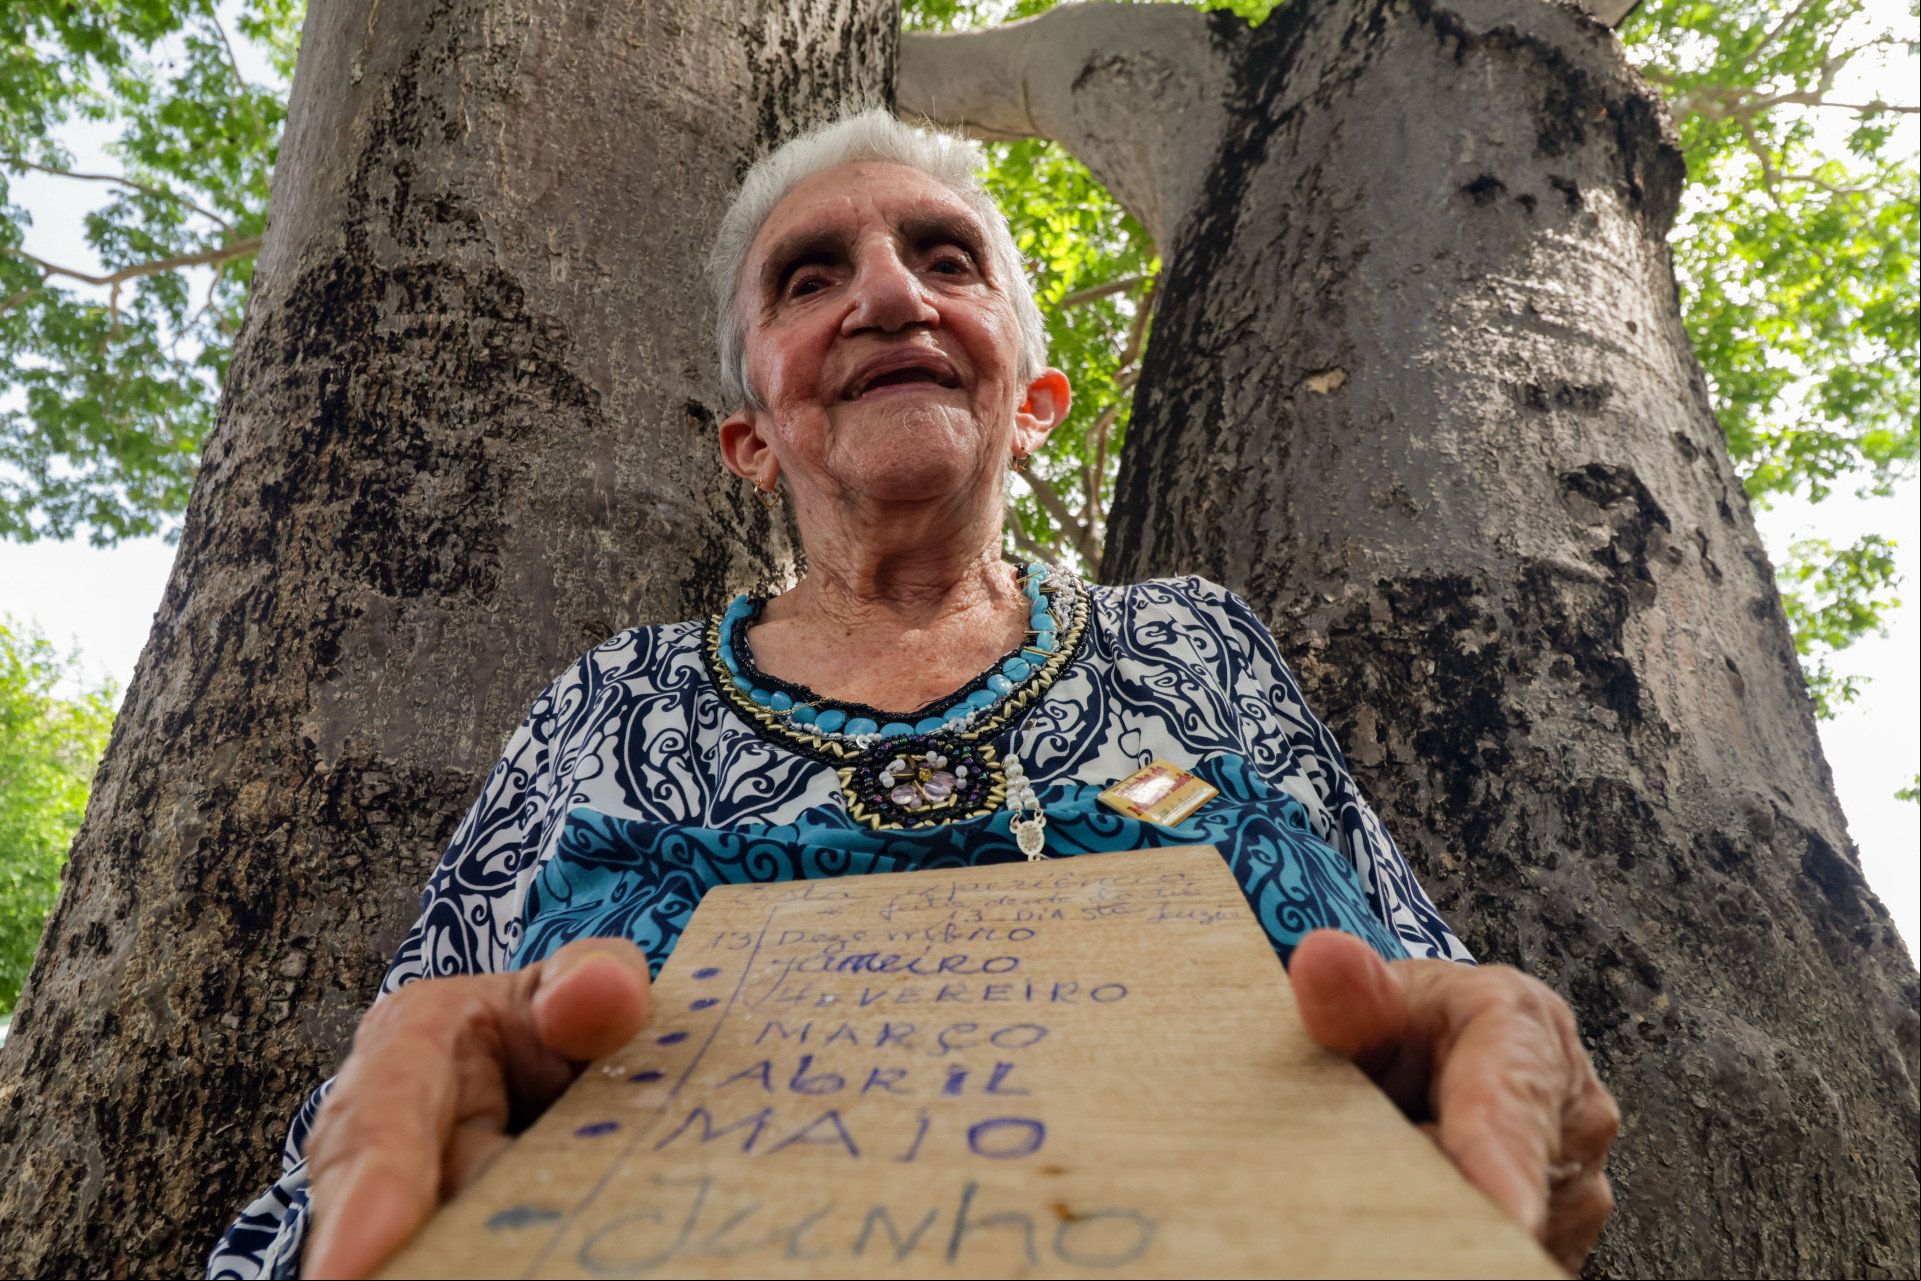 Esta experiência
é feita desde do dia
13 DIA STª Luzia
13 Dezembro
Janeiro
FEVEREIRO
MARÇO
AbRIL
MAIO
Junho